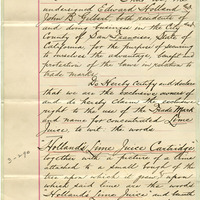 undersigned Edward Holland and
John B. Gilbert, both residents of
and doing business in the City and
County of San Francisco State of
California for the purpose of securing
to ourselves the advantage, benefit and
protection of the laws in relation to
trade marks
Do Hereby certify and declare
that we are the exclusive owners of
and do hereby claim the exclusive
right to the use of the Trade Mark
and name for concentrated Lime
Juice to wit the words
Holland's Lime Juice Cartridge
together with a picture of a lime
attached to a small bough of the
tree upon which it grew, upon
which said lime are the words
"Holland's Lime Juice" and beneath